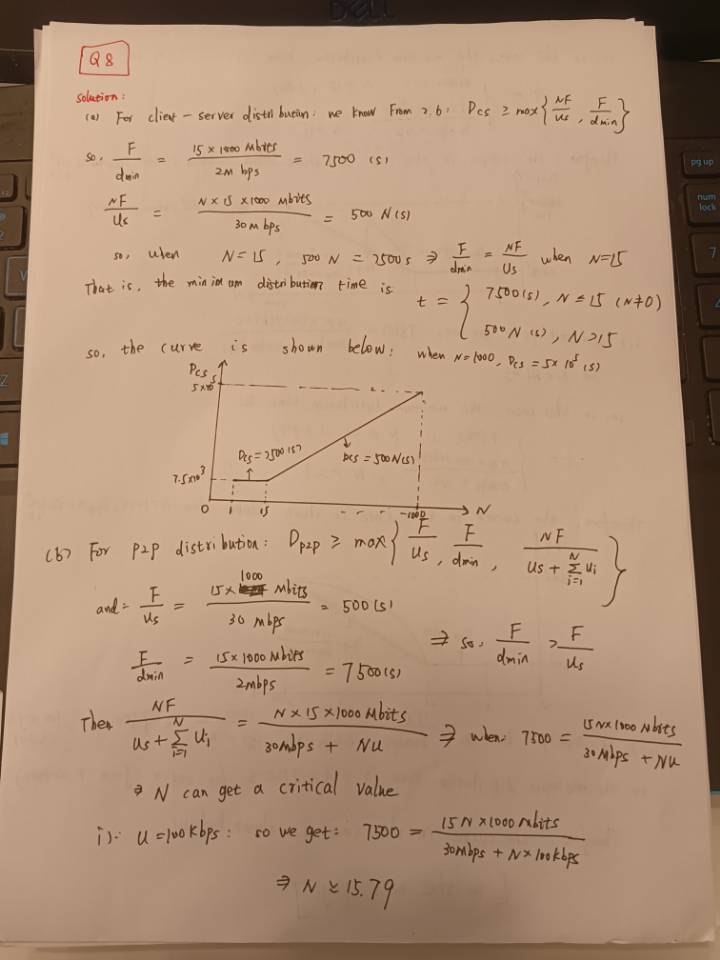 DELL
Q8
solution:
(a) For client-server distribution: we know from 2.6: Dcs ≥ max{NF/us, F/dmin}
so, F/dmin = 15 × 1000 Mbits / 2M bps = 7500 (s)
NF/us = N × 15 × 1000 Mbits / 30M bps = 500 N(s)
so, when N=15, 500 N = 7500s ⇒ F/dmin = NF/us when N=15
That is, the minimum distribution time is t = { 7500(s), N ≤ 15 (N≠0)
500N (s), N>15
so, the curve is shown below: when N=1000, Dcs = 5×10⁵ (s)
Dcs
5×10⁵
Dcs=7500(s)
Dcs=500N(s)
7.5×10³
0 1 15 1000 N
(b) For P2P distribution: Dp2p ≥ max{F/us, F/dmin, NF/(us + Σ_{i=1}^{N} ui)}
and: F/us = 15×1000 Mbits / 30 Mbps = 500(s)
⇒ so. F/dmin > F/us
F/dmin = 15×1000 Mbits / 2mbps = 7500(s)
Then NF/(us + Σ_{i=1}^{N} ui) = N×15×1000 Mbits / (30Mbps + Nu) ⇒ when: 7500 = 15N×1000 Mbits / (30Mbps + Nu)
⇒ N can get a critical value
i): u=100Kbps: so we get: 7500 = 15N×1000 Mbits / (30mbps + N×100kbps)
⇒ N ≈ 15.79
pg up
num
lock
7